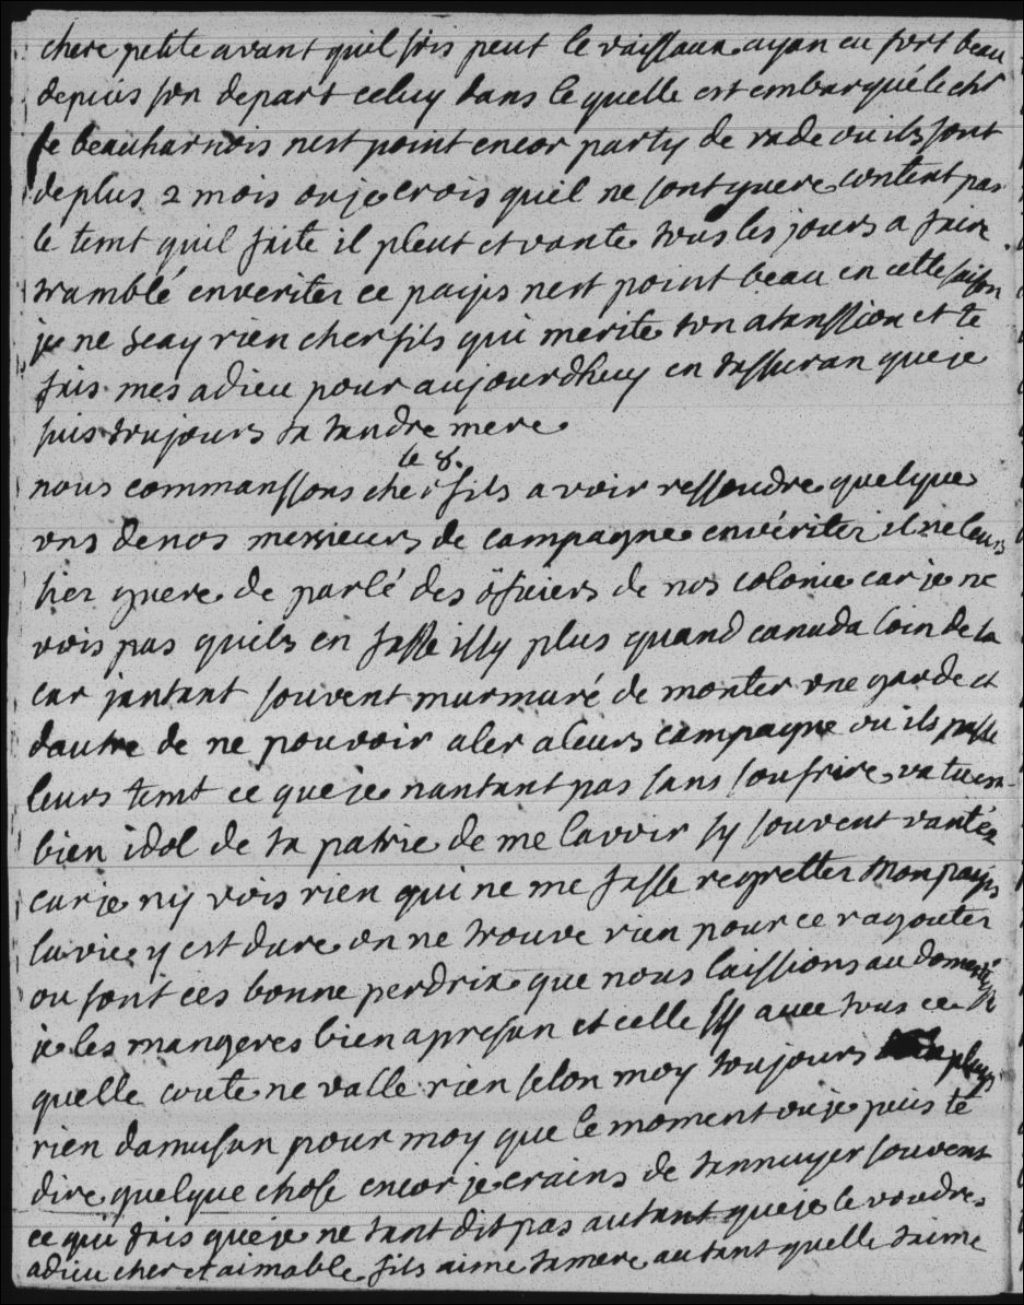 chere petite avant quil sois peut le vaissaux ayan eu fort beau
depuis son depart celuy dans le quelle est embarqué le chr
de beauharnois nest point encor party de rade ou ils sont
de plus 2 mois ou je crois quil ne sont guere content par
le temt quil faite il pleut et vante tous les jours a faire
tramblé enveriter ce paijis nest point beau en cette saison
je ne scay rien cher fils qui merite ton atanssion et te
fais mes adieu pour aujourdhuy en tassuran que je
suis toujours ta tandre mere
le 8.
nous commanssons cher fils a voir ressendre quelque
uns de nos messieurs de campagne envériter il ne leurs
sier guere de parlé des öficiers de nos colonie car je ne
vois pas quils en fasse issy plus quand canada loin de la
car jantant souvent murmuré de monter une garde et
dautre de ne pouvoir aler a leurs campagne ou ils passe
leurs temt ce que je nantant pas sans soufrire va tu es
bien idol de ta patrie de me lavoir sy souvent vantéa
car je nij vois rien qui ne me fasse regretter mon paijis
la vie y est dure on ne trouve rien pour ce ragouter
ou sont ces bonne perdrix que nous laissions au domestique
je les mangeres bien apresan et celle issy avec tous ce
quelle coute ne valle rien selon moy toujours plus
rien damusan pour moy que le moment ou je puis te
dire quelque chose encor je crains de tannuyer souvent
ce qui fais que je ne tant dit pas autant que je le voudres
adieu cher et aimable fils aime ta mere autant quelle taime